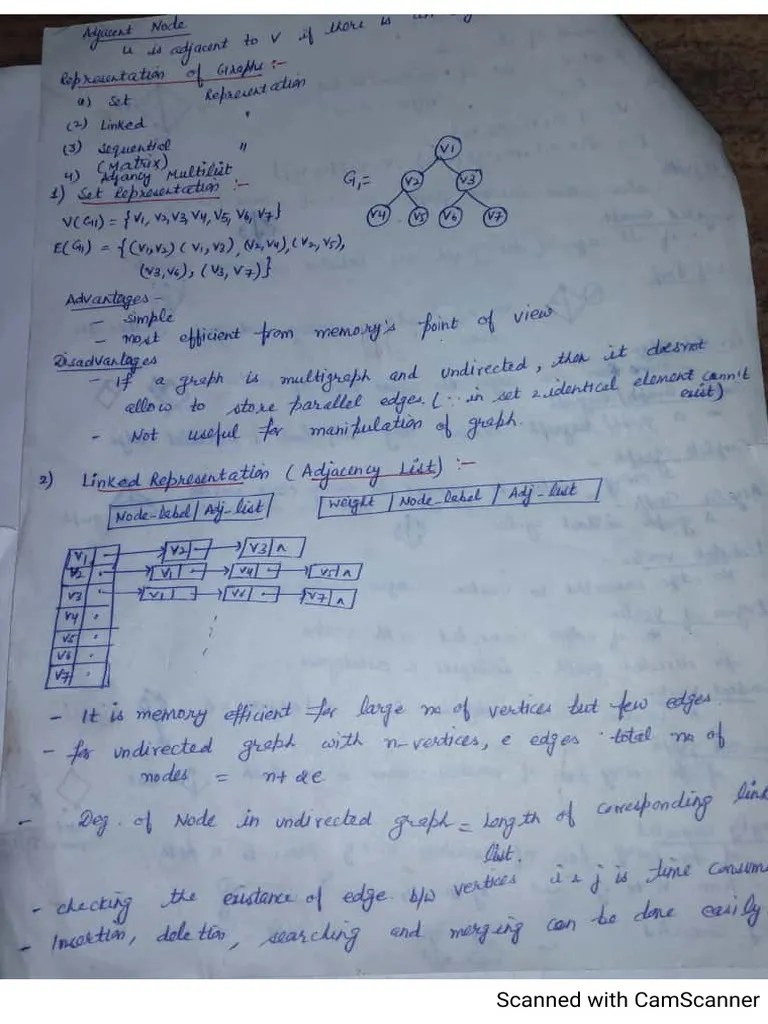 Adjacent Node
u is adjacent to v if there is
Representation of Graphs :-
a) Set Representation
(2) Linked "
(3) Sequential "
(Matrix)
4) Adjancy Multilist
1) Set Representation :-
G1 =
V1
V2 V3
V4 V5 V6 V7
V(G1) = {V1, V2, V3, V4, V5, V6, V7}
E(G1) = {(V1,V2) (V1,V3), (V2,V4), (V2,V5),
(V3,V6), (V3,V7)}
Advantages -
- simple
- most efficient from memory's point of view
Disadvantages
- If a graph is multigraph and undirected, then it doesnot
allow to store parallel edges. (∵ in set 2 identical element cann't
exist)
- Not useful for manipulation of graph.
2) Linked Representation (Adjacency List) :-
Node-label | Adj-list Weight | Node-label | Adj-list
V1 V2 V3 ʌ
V2 V1 V4 V5 ʌ
V3 V1 V6 V7 ʌ
V4
V5
V6
V7
- It is memory efficient for large no of vertices but few edges
- for undirected graph with n-vertices, e edges total no of
nodes = n+2e
- Deg. of Node in undirected graph = Length of corresponding link
list.
- checking the existance of edge b/w vertices i & j is time consum
- Insertion, deletion, searching and merging can be done easily
Scanned with CamScanner